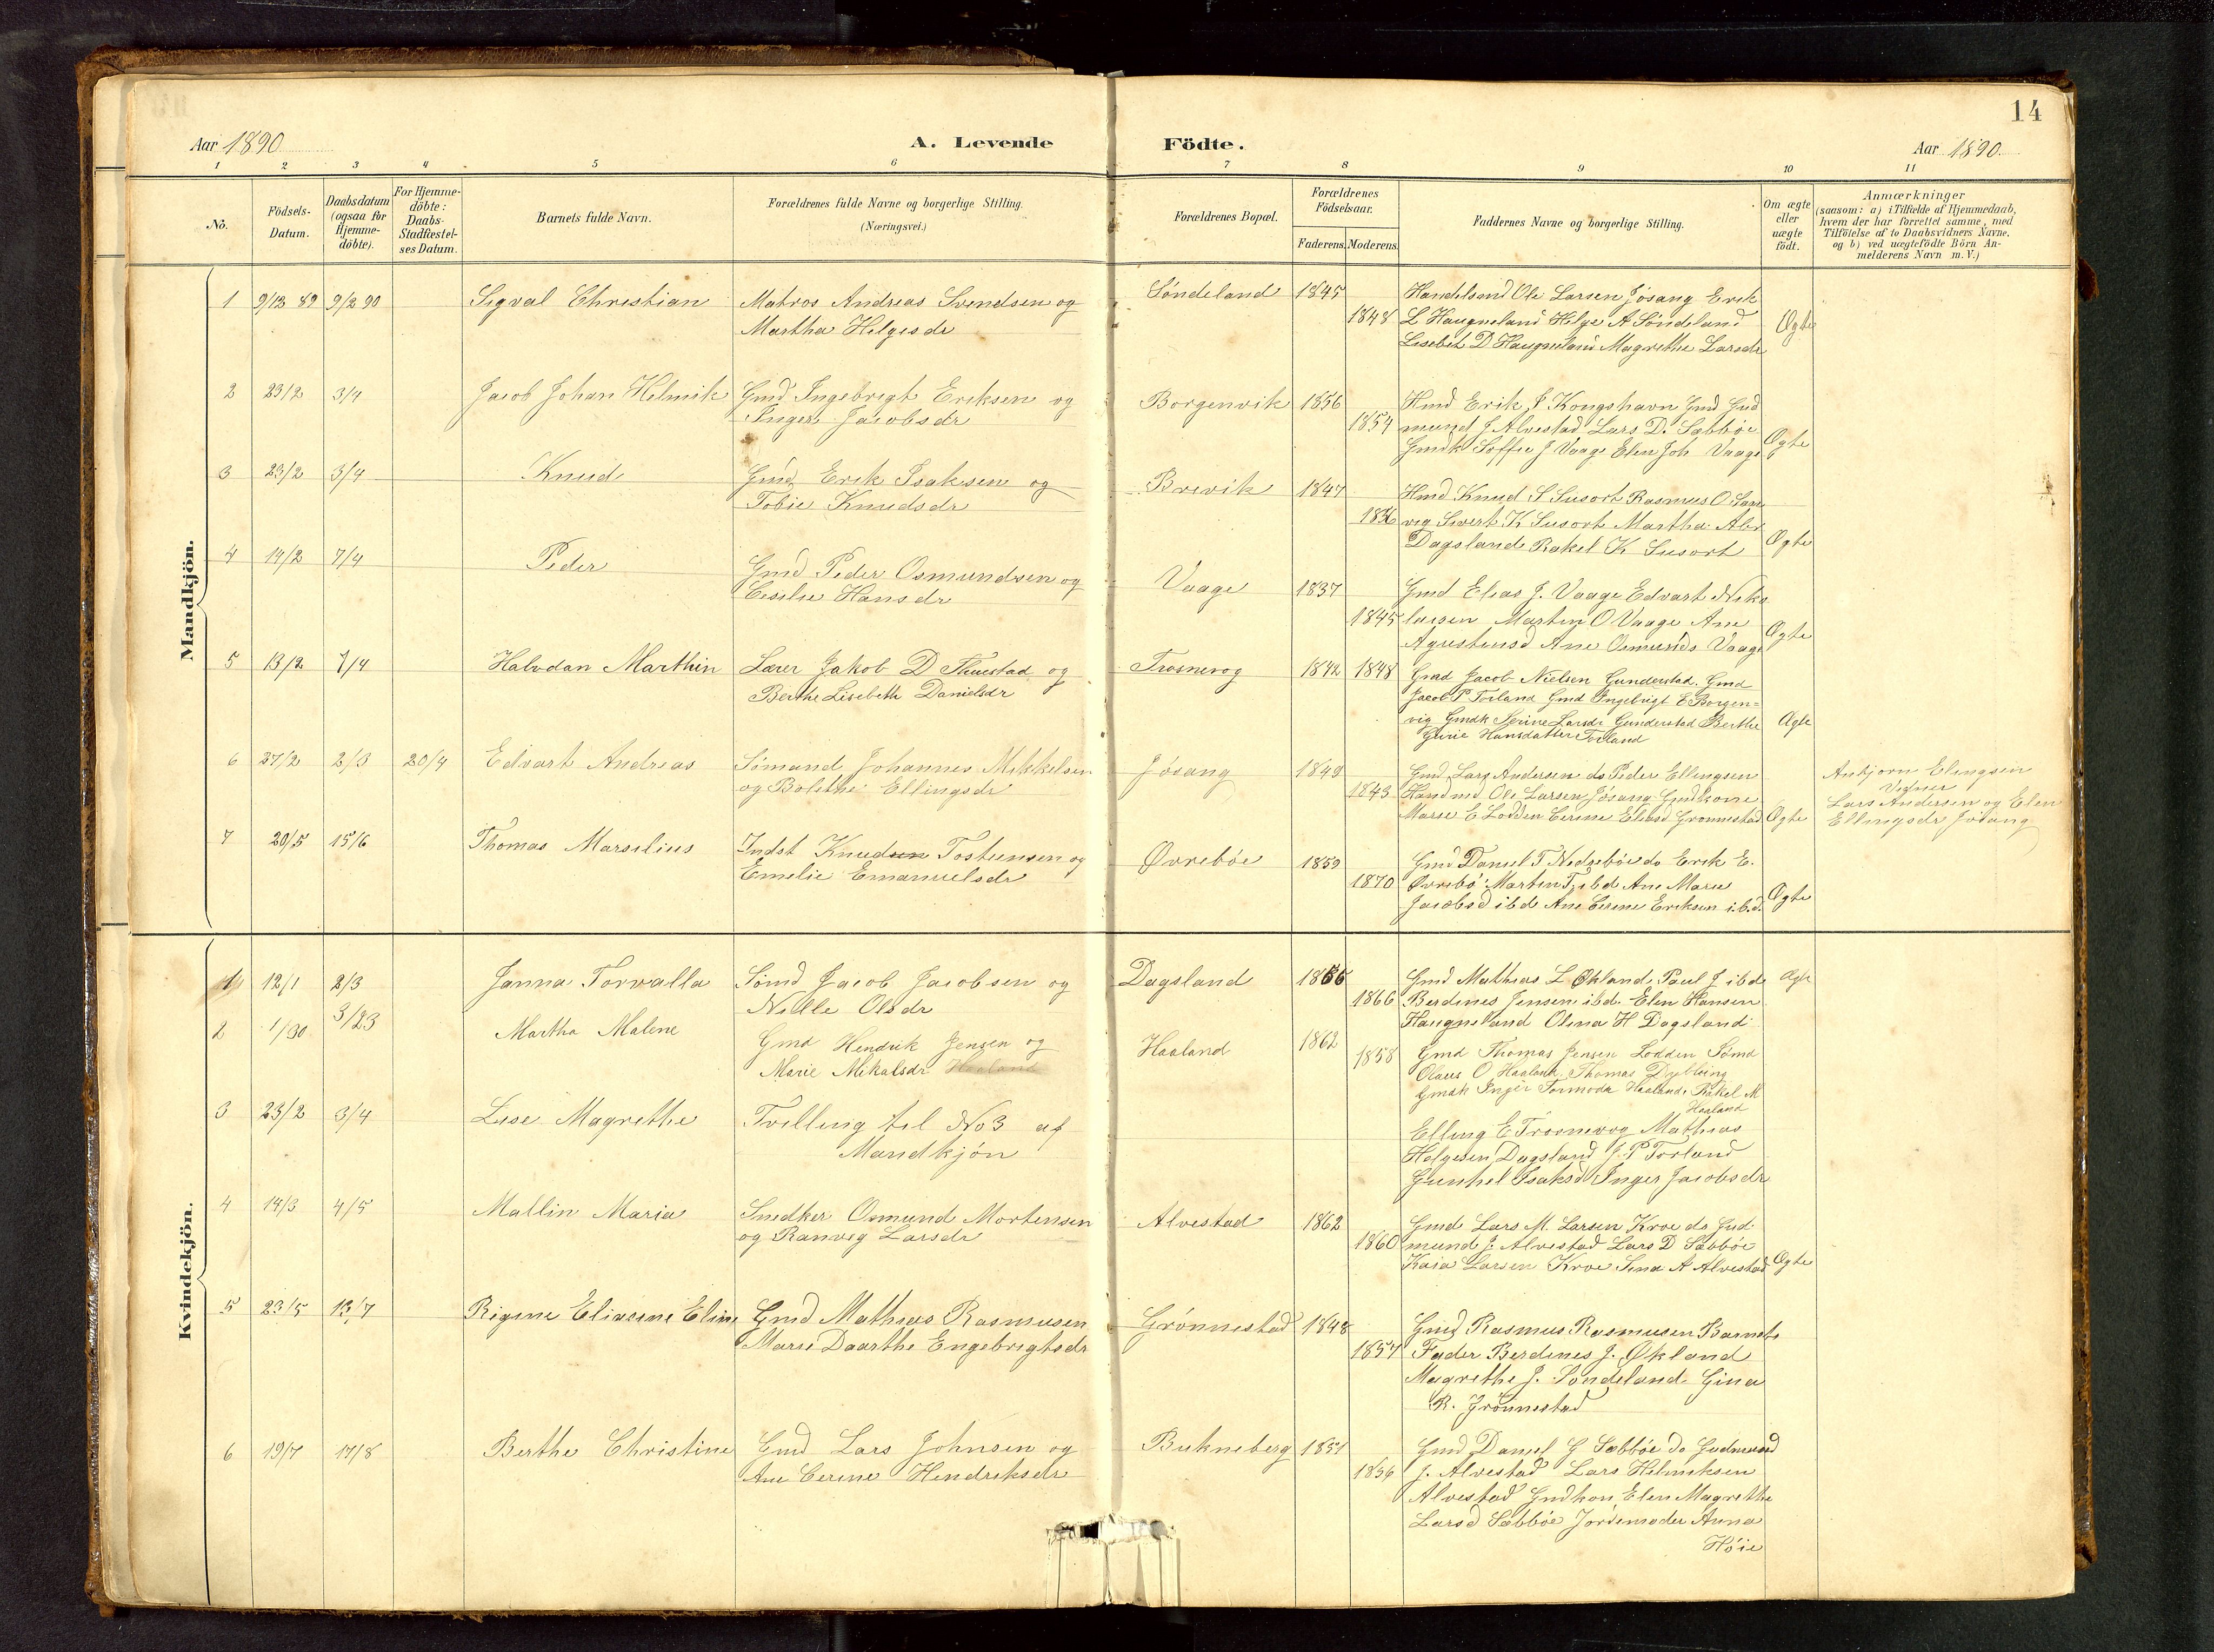 14
Aar 1890
A. Levende Födte.
Aar 1890.
1 2 3 4 5 6 7 8 9 10 11
No.
Födsels-Datum.
Daabsdatum (ogsaa for Hjemme-döbte).
For Hjemme-döbte: Daabs-Stadfæstel-ses Datum.
Barnets fulde Navn.
Forældrenes fulde Navne og borgerlige Stilling.
(Næringsvei.)
Forældrenes Bopæl.
Forældrenes Födselsaar.
Faderens. Moderens.
Faddernes Navne og borgerlige Stilling.
Om ægte eller uægte födt.
Anmærkninger
(saasom: a) i Tilfælde af Hjemmedaab,
hvem der har forrettet samme, med
Tilföielse af to Daabsvidners Navne,
og b) ved uægtefödte Börn An-
melderens Navn m. V.)
Mandkjön.
1 9/12 89 9/2 90 Sigval Christian Matros Andreas Svendsen og Söndeland 1845 Handelsmd Ole Larsen Jösang Erik
Martha Helgesdr 1848 L Haugneland Helge A Söndeland Ægte
Lisebet D Haugneland Magrethe Larsdr
2 23/2 3/4 Jacob Johan Helmik Gmd Ingebrigt Eriksen og Borgenvik 1856 Hmd Erik Kongshavn Gmd Gud
Inger Jacobsdr 1854 mund J Alvestad Lars D. Sæbböe
Gmdk Soffie J Vaage Elen Joh Vaage Ægte
3 23/2 3/4 Knud Gmd Erik Isaksen og Brevik 1847 Hmd Knud S Susort Rasmus O
Tobie Knudsdr 1856 vig Sivert K Susort Martha
Dagsland Rakel K Susort Ægte
4 14/2 7/4 Peder Gmd Peder Osmundsen og Vaage 1837 Gmd Elias J. Vaage Edvart Niko
Cesilie Hansdr 1845 laisen Martin O Vaage Ane
Agustinsd Ane Osmunds Vaage Ægte
5 13/2 7/4 Halvdan Marthin Lærer Jakob D Thuestad og Trosnevog 1842 1848 Gmd Jacob Nielsen Gunderstad. Gmd
Berthe Lisebeth Danielsdr Jacob P Torland Gmd Ingebrigt E Borgen=
vig Gmdk Serine Larsdr Gunderstad Berthe Ægte
Gurie Hansdatter Torland
6 27/2 2/3 20/4 Edvart Andreas Sömand Johannes Mikkelsen Jösang 1849 Gmd Lars Andersen do Peder Ellingsen Anbjorn Elingsen
og Bolethe Ellingsdr 1843 Handmd Ole Larsen Jösang Gmdkone Vidner
Marie E Lodden Cerine Eliasd Grönnestad Ægte Lars Andersen og Elen
Ellingsdr Jösang
7 20/5 15/6 Thomas Marselius Indst Knudsen Tostensen og Övreböe 1859 Gmd Daniel T Nedrebö do Erik E.
Emelie Emanuelsdr 1870 Övrebö Martin T, ibd Ane Marie
Jacobsd ibd Ane Cerine Eriksen i.b.d. Ægte
Kvindekjön.
1 12/1 2/3 Janna Torvalla Sömd Jacob Jacobsen og Dagsland 1866 Gmd Mathias L Økland, Paul J ibd Ægte
Nille Olsdr 1866 Berdines Jensen ibd. Elen Hansen
Haugneland Olina H Dagsland
2 1/90 3/23 Martha Malene Gmd Hendrik Jensen og Haaland 1862 Gmd Thomas Jensen Lodden Sömd
Marie Mikalsdr Haaland 1858 Olaus O Haaland Thomas Dybbing
Gmdk Inger Tormoda Haaland Rakel M
Haaland
3 23/2 3/4 Lise Magrethe Tvilling til No 3 af Elling E Trosnevog Mathias
Mandkjön Helgesen Dagsland J. P Torland
Gunhel Isaksd Inger Jacobsdr
4 14/3 4/5 Mallin Maria Snedker Osmund Mortensen Alvestad 1862 Gmd Lars M. Larsen Kroe do Gud
og Ranveig Larsdr 1860 mund J. Alvestad Lars D Sæbböe
Kaia Larsen Kroe Sina A Alvestad Ægte
5 23/5 13/7 Rigine Eliasine Eline Gmd Mathias Rasmusen Grönnestad 1848 Gmd Rasmus Rasmusen Barnets
Marie Daarthe Engebrigtsdr 1857 Fader Berdines J. Økland
Magrethe J. Söndeland. Gina
R. Grönnestad
6 19/7 17/8 Berthe Christine Gmd Lars Johnsen og Bukneberg 1851 Gmd Daniel G Sæbböe do Gudmund
Ane Cerine Hendriksdr 1856 J. Alvestad Lars Helmiksen
Alvestad Gmdkon Elen Magrethe
Larsd Sæbböe Jordemoder Anna
Höie